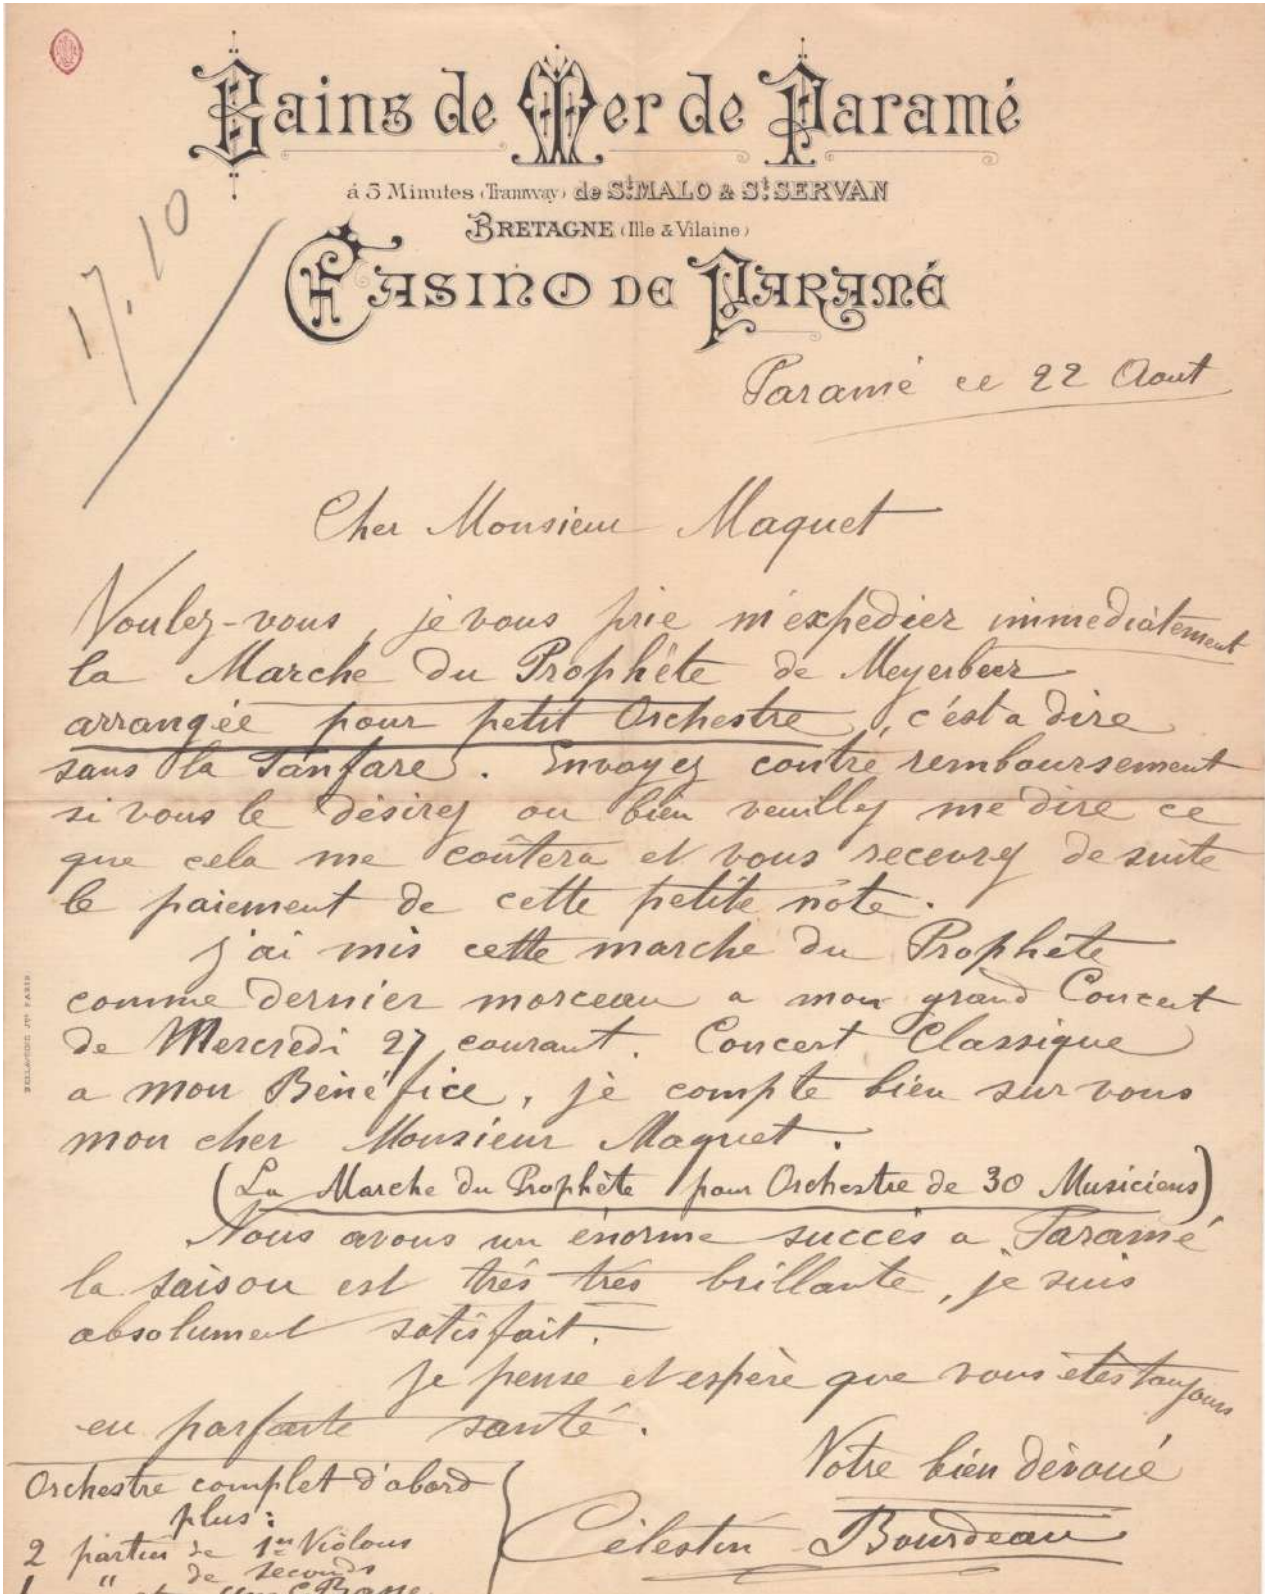 Bains de Mer de Paramé
á 5 Minutes (Tramway) de St. MALO & St. SERVAN
BRETAGNE (Ille & Vilaine)
CASINO DE PARAMÉ
17.10
Paramé ce 22 Aout
Cher Monsieur Maquet
Voulez-vous, je vous prie m'expedier immediatement
la Marche du Prophète de Meyerbeer
arrangée pour petit Orchestre, c'est a dire
sans la Fanfare. Envoyez contre remboursement
si vous le désirez ou bien veuillez me dire ce
que cela me coûtera et vous recevrez de suite
le paiement de cette petite note.
J'ai mis cette marche du Prophète
comme dernier morceau a mon grand Concert
de Mercredi 27 courant. Concert Classique
a mon Bénéfice, je compte bien sur vous
mon cher Monsieur Maquet.
(La Marche du Prophète pour Orchestre de 30 Musiciens)
Nous avons un énorme succès a Paramé
la saison est très très brillante, je suis
absolument satisfait.
Je pense et espère que vous êtes toujours
en parfaite santé.
Votre bien dévoué
Célestin Bourdeau
Orchestre complet d'abord
plus :
2 parties de 1ers Violons
1 " de seconds